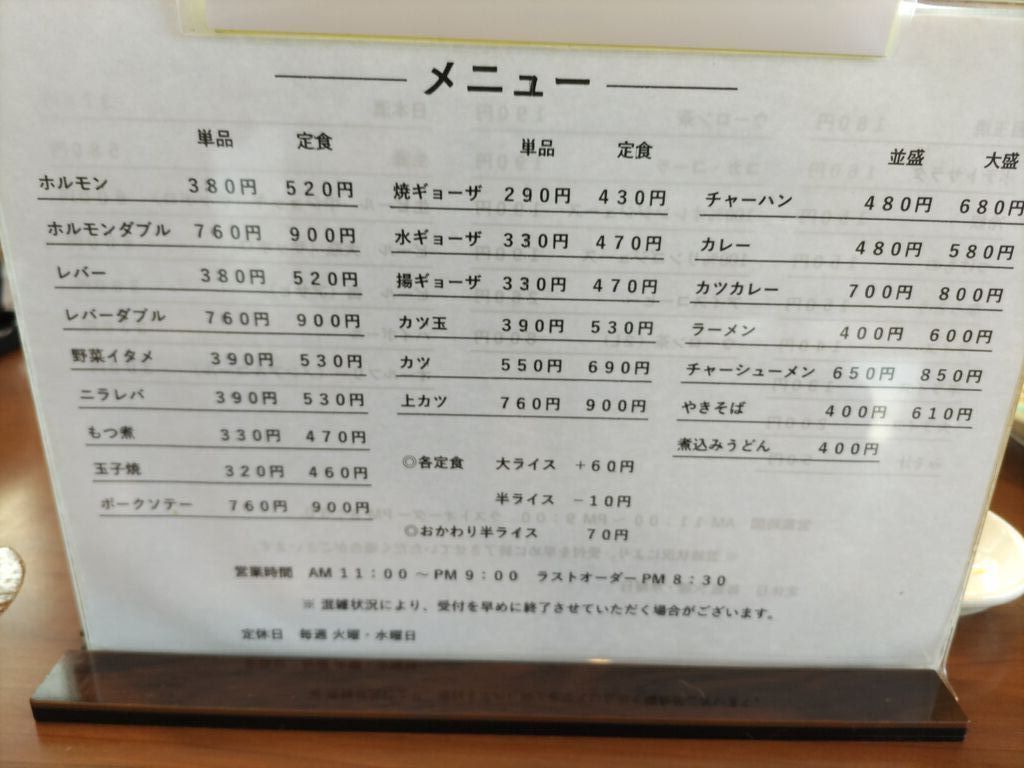 メニュー
単品 定食
ホルモン 380円 520円
ホルモンダブル 760円 900円
レバー 380円 520円
レバーダブル 760円 900円
野菜イタメ 390円 530円
ニラレバ 390円 530円
もつ煮 330円 470円
玉子焼 320円 460円
ポークソテー 760円 900円
単品 定食
焼ギョーザ 290円 430円
水ギョーザ 330円 470円
揚ギョーザ 330円 470円
カツ玉 390円 530円
カツ 550円 690円
上カツ 760円 900円
◎各定食 大ライス +60円
半ライス -10円
◎おかわり半ライス 70円
並盛 大盛
チャーハン 480円 680円
カレー 480円 580円
カツカレー 700円 800円
ラーメン 400円 600円
チャーシューメン 650円 850円
やきそば 400円 610円
煮込みうどん 400円
営業時間 AM11:00～PM9:00 ラストオーダーPM8:30
※ 混雑状況により、受付を早めに終了させていただく場合がございます。
定休日 毎週 火曜・水曜日